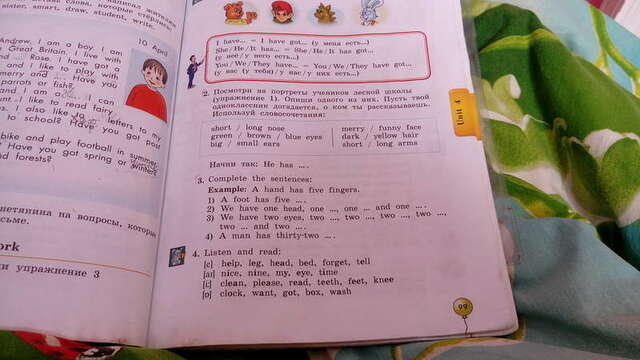 sister, smart, draw, student, write.
10 April
Andrew. I am a boy. I am
Great Britain. I live with
Rose. I have got
and I like to play with
merry and Have you
parrots or fish?
am a I can
I like to read fairy
I also like letters to my
to school? Have you got
bike and play football in summer.
Have you got spring or winter?
and forests?
на вопросы, которые
ork
упражнение 3
I have... = I have got... (у меня есть...)
She/He/It has... = She/He/It has got...
(у неё/у него есть...)
You/We/They have... = You/We/They have got...
(у вас (у тебя)/у нас/у них есть...)
2. Посмотри на портреты учеников лесной школы
(упражнение 1). Опиши одного из них. Пусть твой
одноклассник догадается, о ком ты рассказываешь.
Используй словосочетания:
short / long nose
green / brown / blue eyes
big / small ears
merry / funny face
dark / yellow hair
short / long arms
Начни так: He has ... .
3. Complete the sentences:
Example: A hand has five fingers.
1) A foot has five ... .
2) We have one head, one ..., one ... and one ... .
3) We have two eyes, two ..., two ..., two ..., two ...,
two ... and two ... .
4) A man has thirty-two ... .
4. Listen and read:
[e] help, leg, head, bed, forget, tell
[aɪ] nice, nine, my, eye, time
[i:] clean, please, read, teeth, feet, knee
[ɒ] clock, want, got, box, wash
Unit 4
99